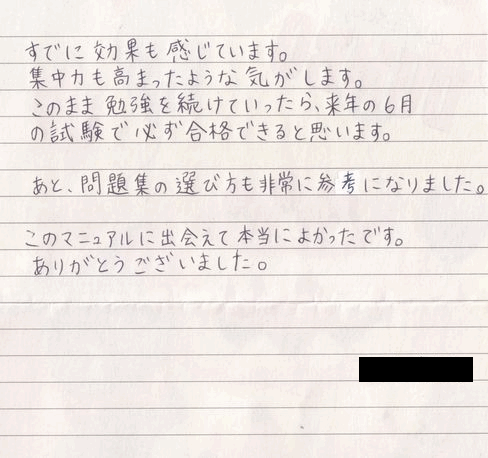 すでに効果も感じています。
集中力も高まったような気がします。
このまま勉強を続けていったら、来年の6月
の試験で必ず合格できると思います。
あと、問題集の選び方も非常に参考になりました。
このマニュアルに出会えて本当によかったです。
ありがとうございました。